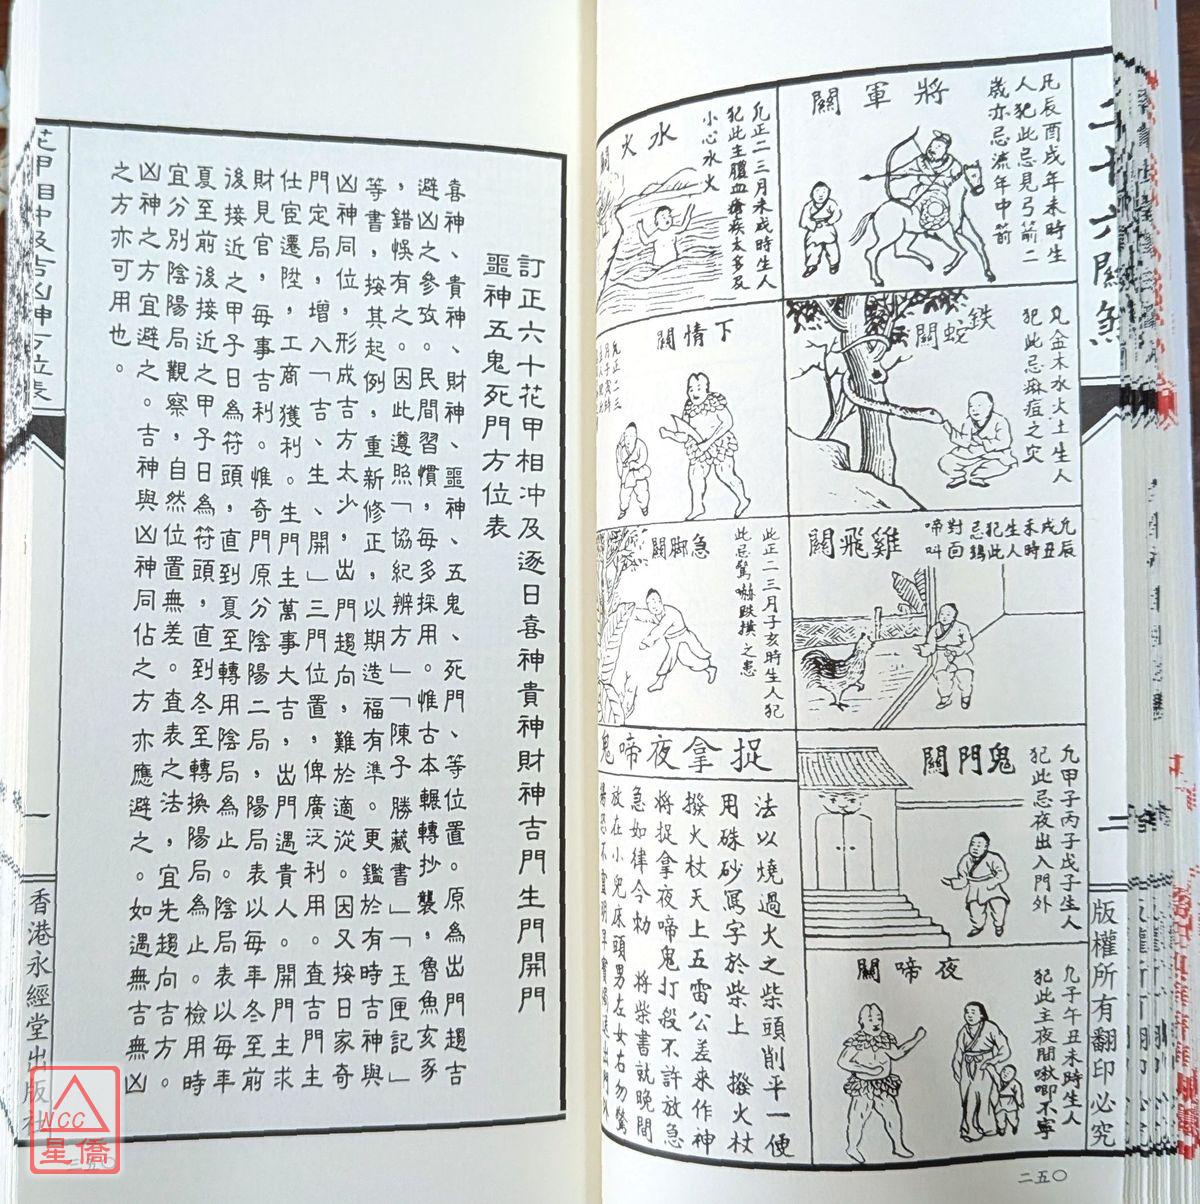 二十六關煞
版權所有翻印必究
二五〇
將軍關
凡辰酉戌年未時生
人犯此忌見弓箭二
歲亦忌流年中箭
水火關
凡正二三月未戌時生人
犯此主膿血瘡疾太多反
小心水火
鉄蛇關
凡金木水火土生人
犯此忌痳痘之灾
下情關
雞飛關
凡辰
戌丑
未時
生人
犯此
忌鷄
對面
啼叫
急脚關
此正二三月子亥時生人犯
此忌驚嚇跌撲之患
鬼門關
凡甲子丙子戊子生人
犯此忌夜出入門外
夜啼關
凡子午丑未時生人
犯此主夜間啾唧不寧
捉拿夜啼鬼
法以燒過火之柴頭削平一便
用硃砂寫字於柴上　撥火杖
撥火杖天上五雷公差來作神
将捉拿夜啼鬼打殺不許放急
急如律令勅　將柴書就晚間
放在小兒床頭男左女右勿驚
訂正六十花甲相冲及逐日喜神貴神財神吉門生門開門
噩神五鬼死門方位表
喜神、貴神、財神、噩神、五鬼、死門、等位置。原為出門趨吉
避凶之參攷。民間習慣，每多採用。惟古本輾轉抄襲，魯魚亥豕
，錯悞有之。因此遵照「協紀辨方」「陳子勝藏書」「玉匣記」
等書，按其起例，重新修正，以期造福有準。更鑑於有時吉神與
凶神同位，形成吉方太少，出門趨向，難於適從。因又按日家奇
門定局，增入「吉、生、開」三門位置，俾廣泛利用。查吉門主
仕宦遷陞，工商獲利。生門主萬事大吉，出門遇貴人。開門主求
財見官，每事吉利。惟奇門原分陰陽二局，陽局表以每年冬至前
後接近之甲子日為符頭，直到夏至轉用陰局為止。陰局表以每年
夏至前後接近之甲子日為符頭，直到冬至轉換陽局為止。檢用時
宜分別陰陽局觀察，自然位置無差。查表之法，宜先趨向吉方。
凶神之方宜避之。吉神與凶神同佔之方亦應避之。如遇無吉無凶
之方亦可用也。
花甲相冲及吉凶神方位表
一
香港永經堂出版社
WCC
星僑
三五〇